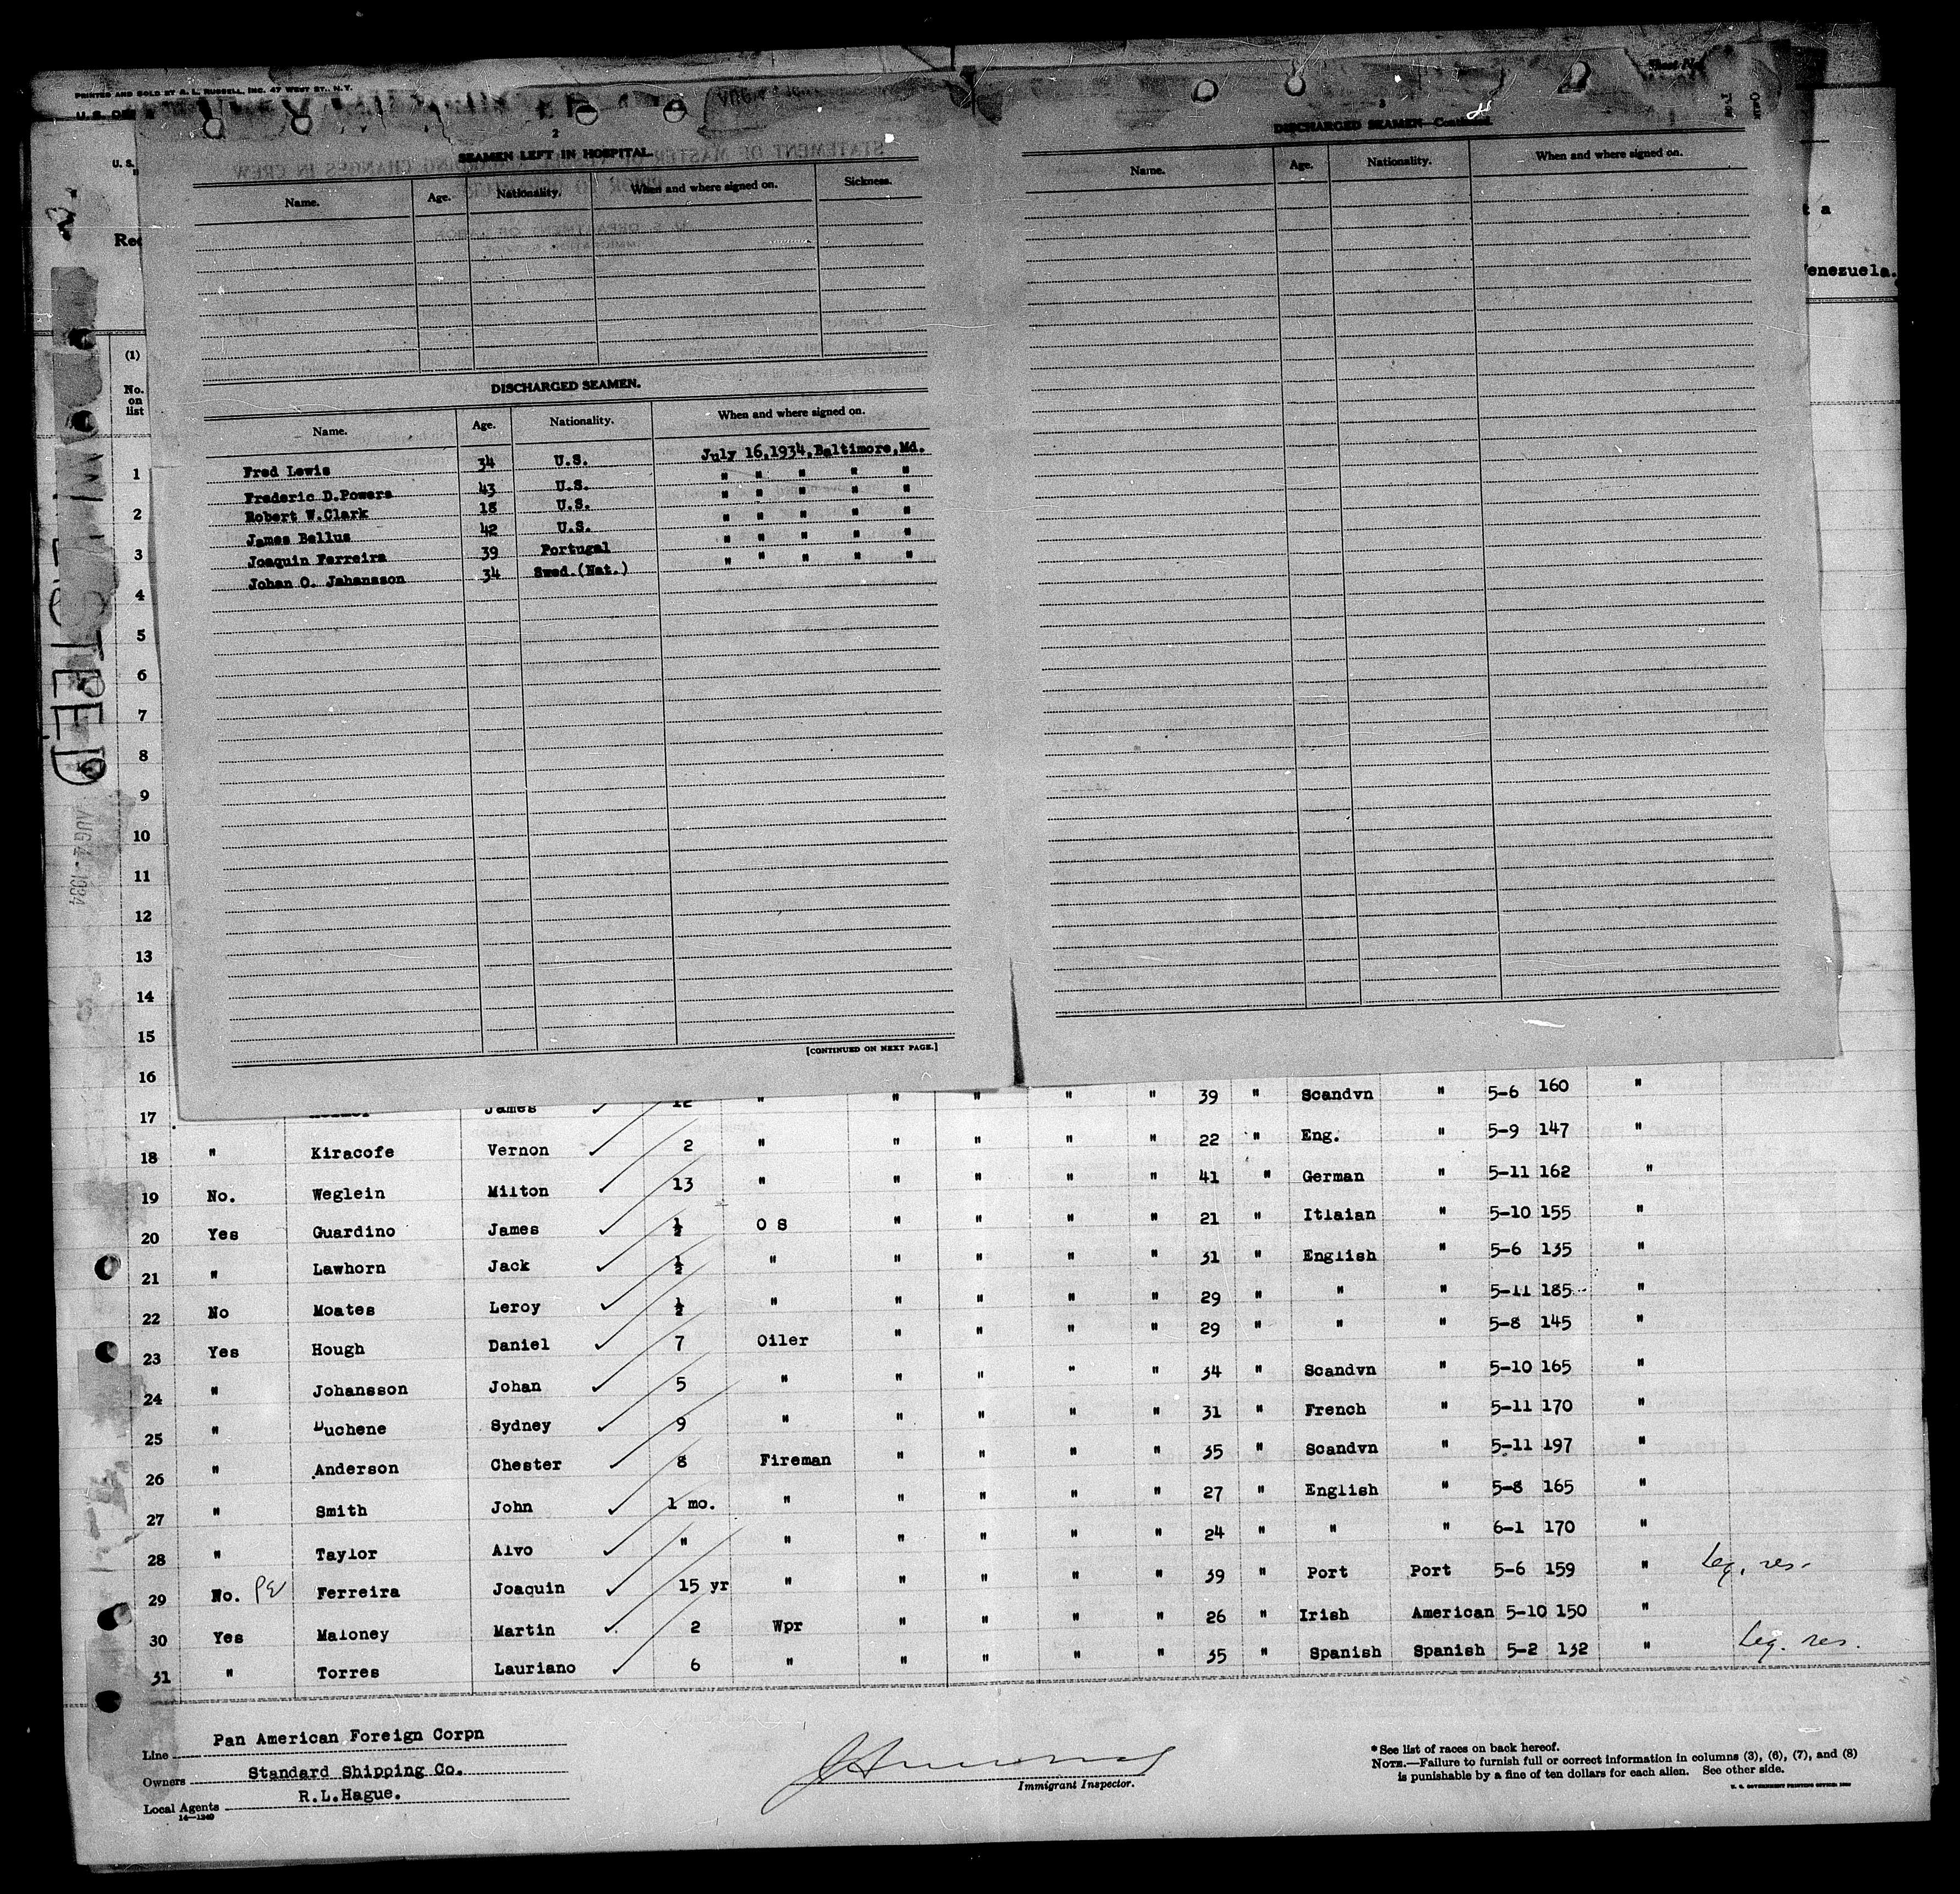 PRINTED AND SOLD BY S. L. RUSSELL, INC. 47 WEST ST., N. Y.
2
SEAMEN LEFT IN HOSPITAL.
Name. Age. Nationality. When and where signed on. Sickness.
DISCHARGED SEAMEN.
Name. Age. Nationality. When and where signed on.
Fred Lewis 34 U.S. July 16,1934,Baltimore,Md.
Frederic D.Powers 43 U.S. " " " " "
Robert W.Clark 18 U.S. " " " " "
James Bellus 42 U.S. " " " " "
Joaquin Ferreira 39 Portugal " " " " "
Johan O. Jahansson 34 Swed.(Nat.) " " " " "
[CONTINUED ON NEXT PAGE.]
3
DISCHARGED SEAMEN—Continued.
Name. Age. Nationality. When and where signed on.
Venezuela.
(1)
No. on list
1
2
3
4
5
6
7
8
9
10
11
12
13
14
15
16
17 James 12 " " " " " 39 " Scandvn " 5-6 160 "
18 " Kiracofe Vernon 2 " " " " " 22 " Eng. " 5-9 147 "
19 No. Weglein Milton 13 " " " " " 41 " German " 5-11 162 "
20 Yes Guardino James ½ O S " " " " 21 " Itlaian " 5-10 155 "
21 " Lawhorn Jack ½ " " " " " 31 " English " 5-6 135 "
22 No Moates Leroy ½ " " " " " 29 " " " 5-11 185 "
23 Yes Hough Daniel 7 Oiler " " " " 29 " " " 5-8 145 "
24 " Johansson Johan 5 " " " " " 34 " Scandvn " 5-10 165 "
25 " Duchene Sydney 9 " " " " " 31 " French " 5-11 170 "
26 " Anderson Chester 8 Fireman " " " " 35 " Scandvn " 5-11 197 "
27 " Smith John 1 mo. " " " " " 27 " English " 5-8 165 "
28 " Taylor Alvo " " " " " " 24 " " " 6-1 170 "
29 No. Ferreira Joaquin 15 yr " " " " " 39 " Port Port 5-6 159 " Leg. res.
30 Yes Maloney Martin 2 Wpr " " " " 26 " Irish American 5-10 150 "
31 " Torres Lauriano 6 " " " " " 35 " Spanish Spanish 5-2 132 " Leg. res.
Line Pan American Foreign Corpn
Owners Standard Shipping Co.
Local Agents R.L.Hague.
14—1240
Immigrant Inspector.
* See list of races on back hereof.
NOTE.—Failure to furnish full or correct information in columns (3), (6), (7), and (8)
is punishable by a fine of ten dollars for each alien. See other side.
AUG 1934